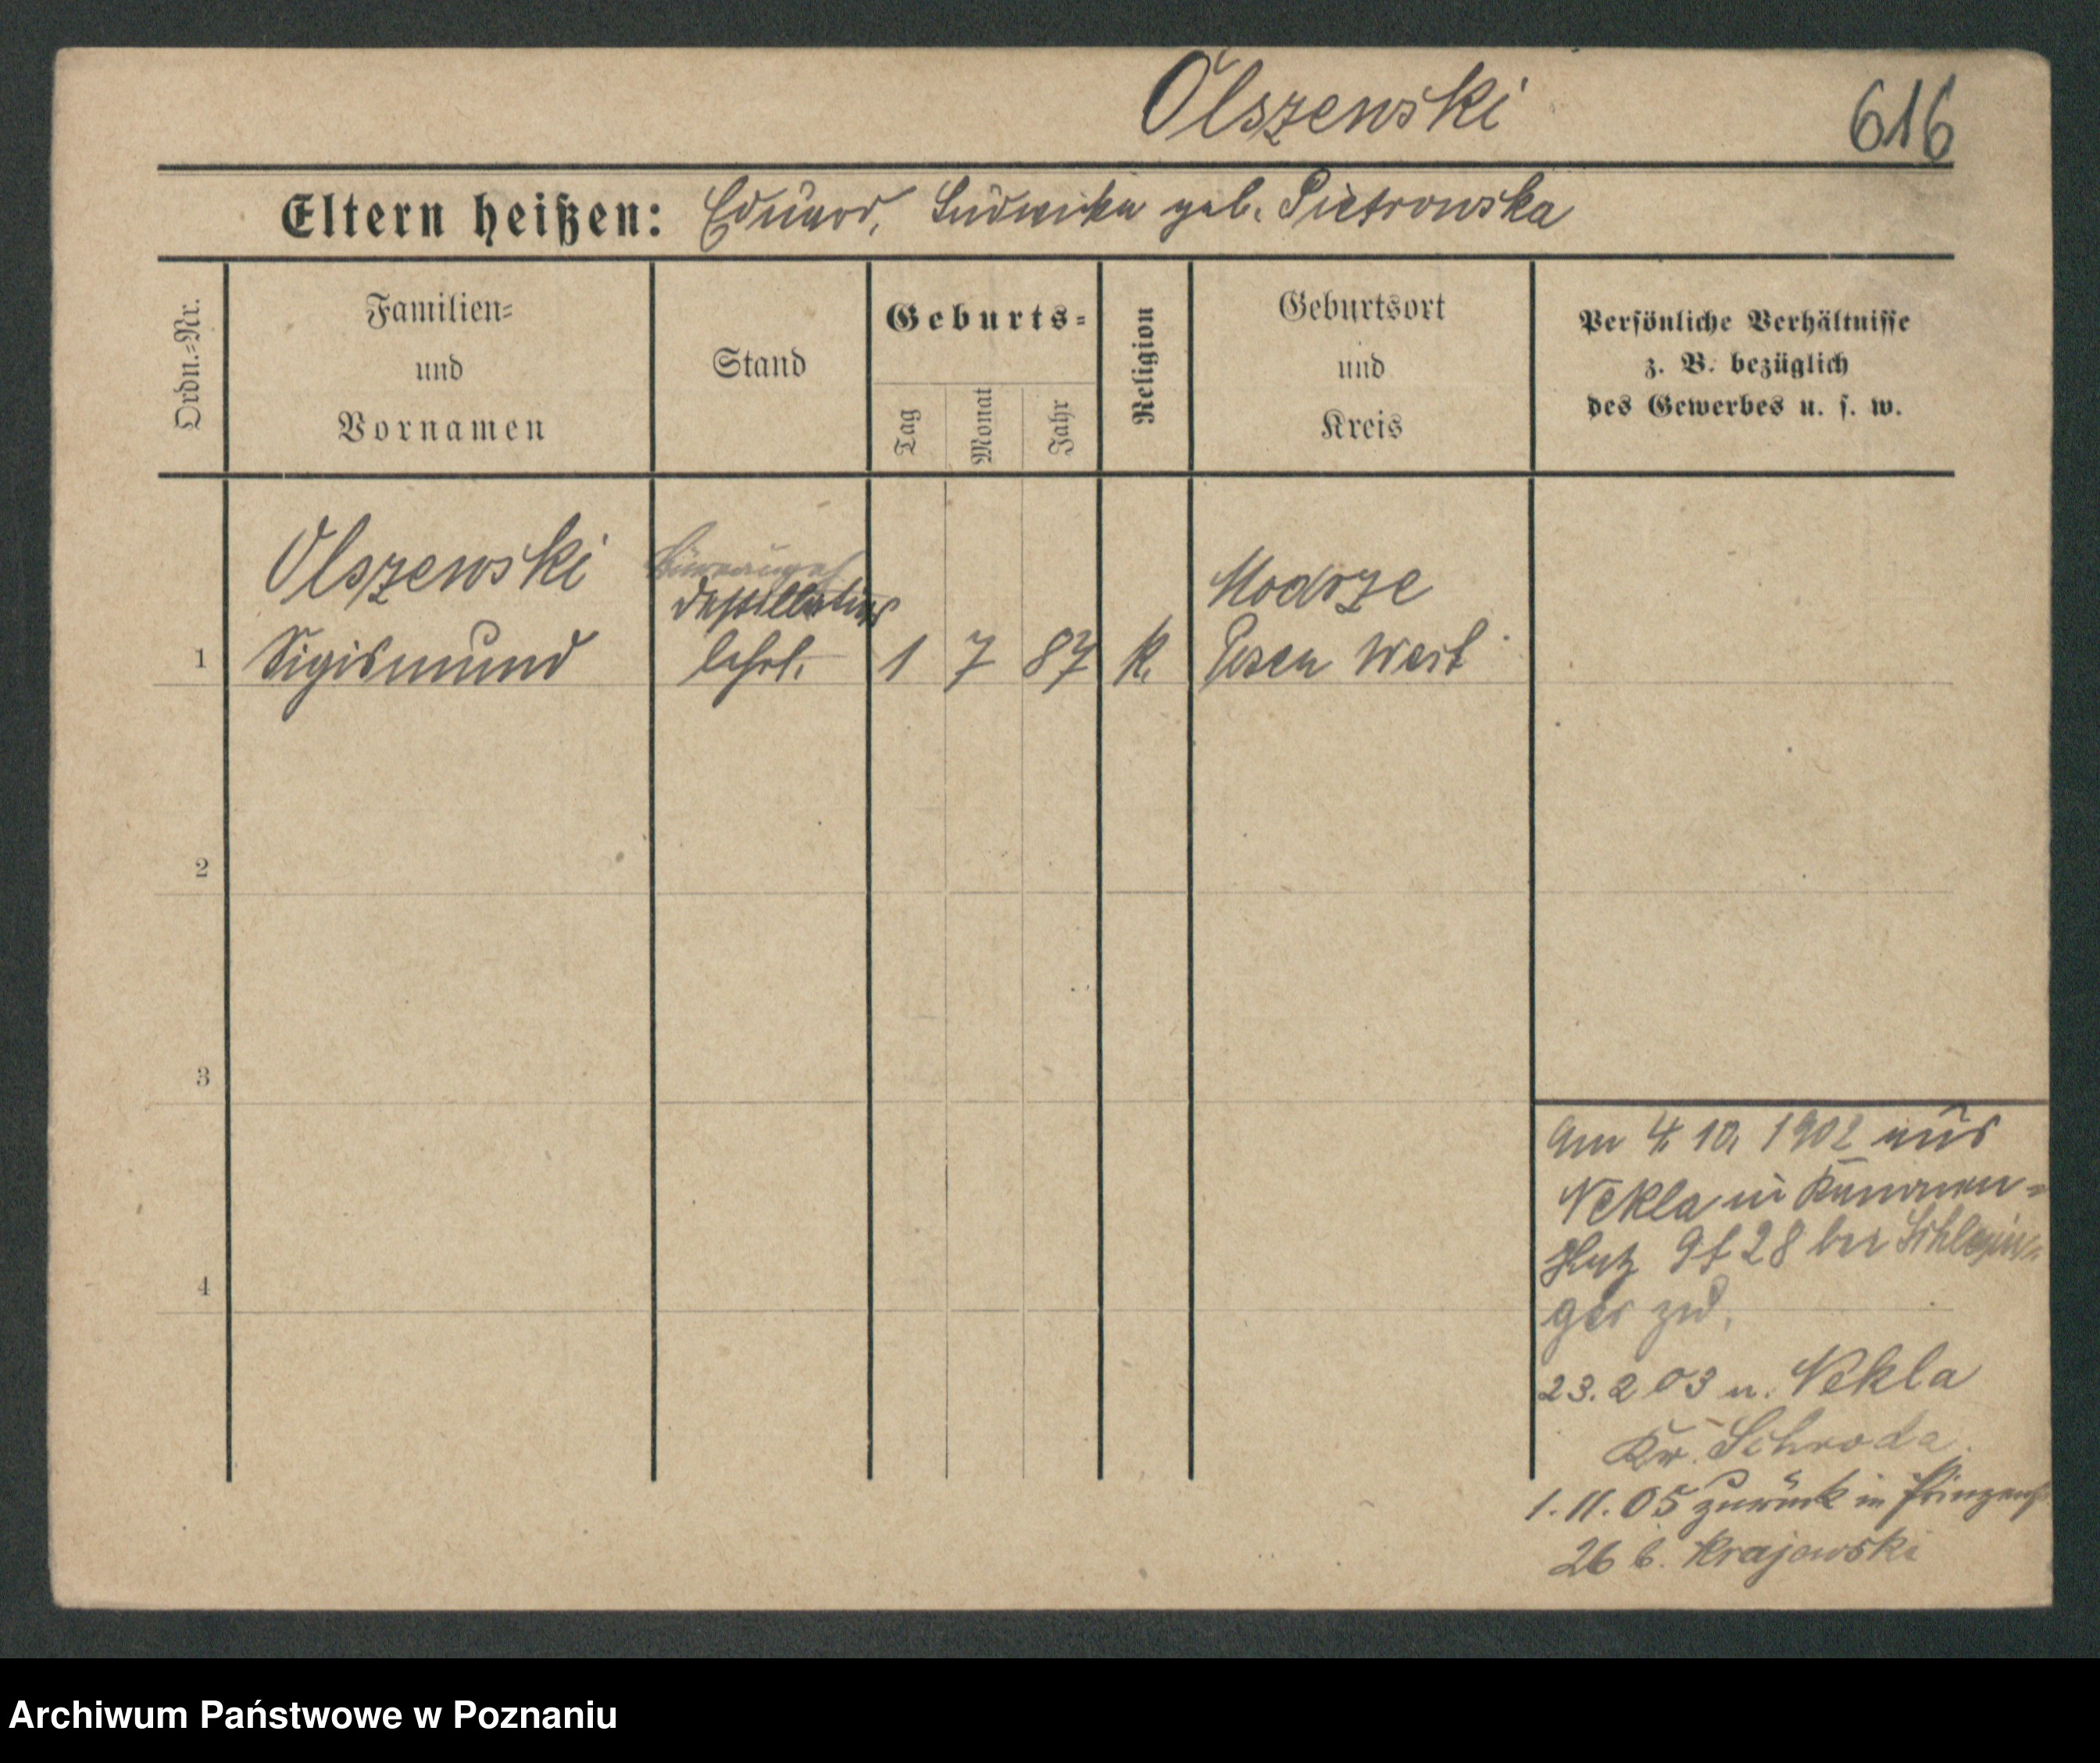 Olszewski
616
Eltern heißen: Eduard, Ludwika geb. Pietrowska
Ordn.=Nr.
Familien=
und
Vornamen
Stand
Geburts=
Tag
Monat
Jahr
Religion
Geburtsort
und
Kreis
Persönliche Verhältnisse
z. B. bezüglich
des Gewerbes u. s. w.
Olszewski
Sigismund
Büreaugeh
Destillateur
lehrl.
1
1
7
87
k.
Modrze
Posen West
2
3
4
Am 4. 10. 1902 aus
Nekla in
28 bei Schlesin=
ger zu.
23. 2 03 n. Nekla
Kr. Schroda.
1. 11. 05 zurück in Prinzen
26 b. Krajewski
Archiwum Państwowe w Poznaniu